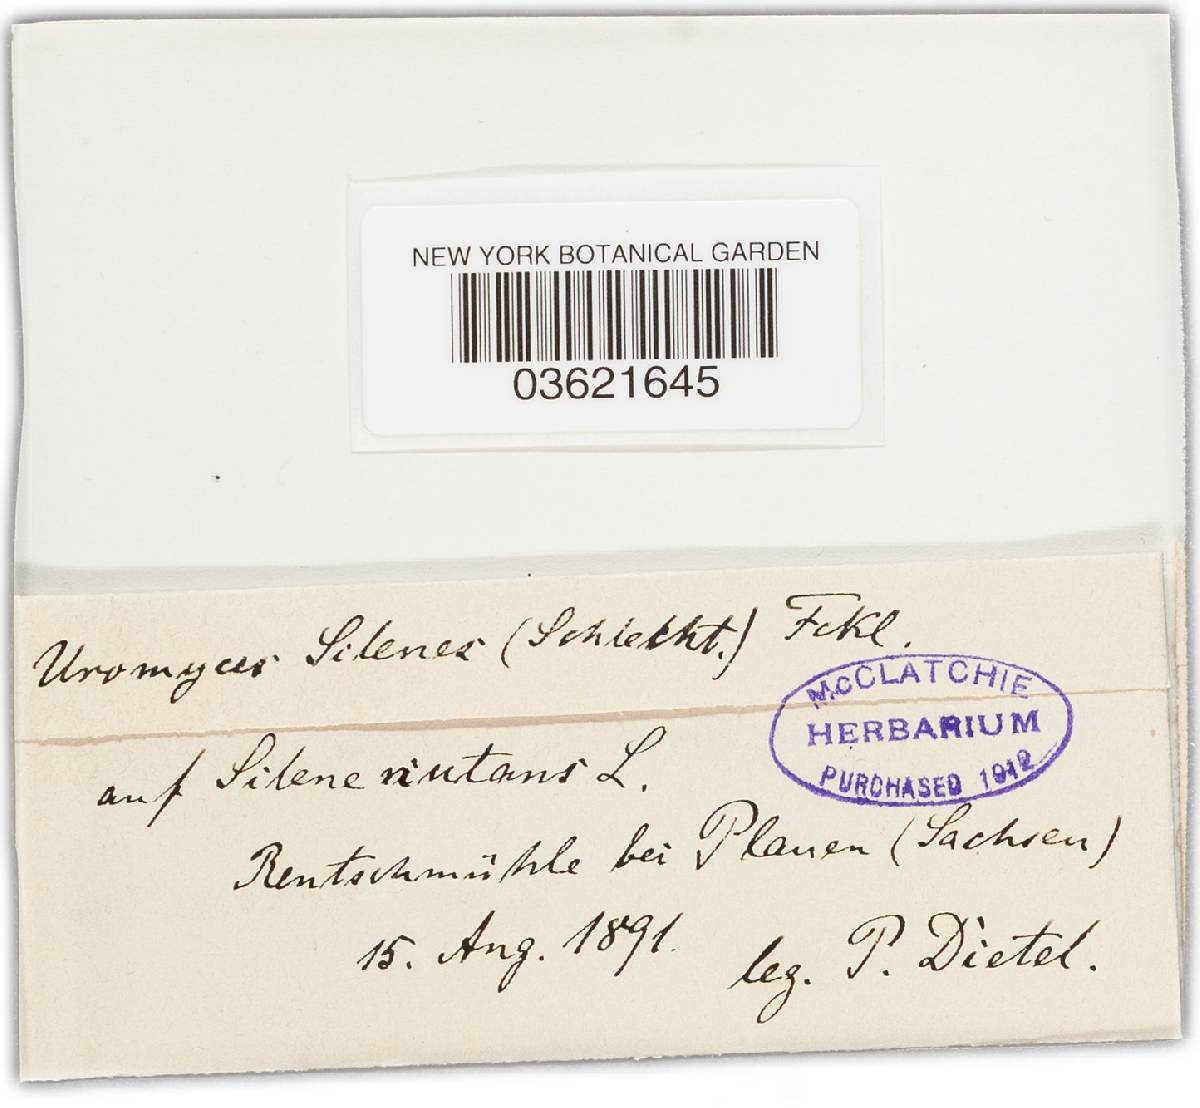 NEW YORK BOTANICAL GARDEN
03621645
Uromyces Silenes (Schlecht.) Fckl.
McCLATCHIE
HERBARIUM
PURCHASED 1912
auf Silene nutans L.
Rentschmühle bei Plauen (Sachsen)
15. Aug. 1891.
leg. P. Dietel.